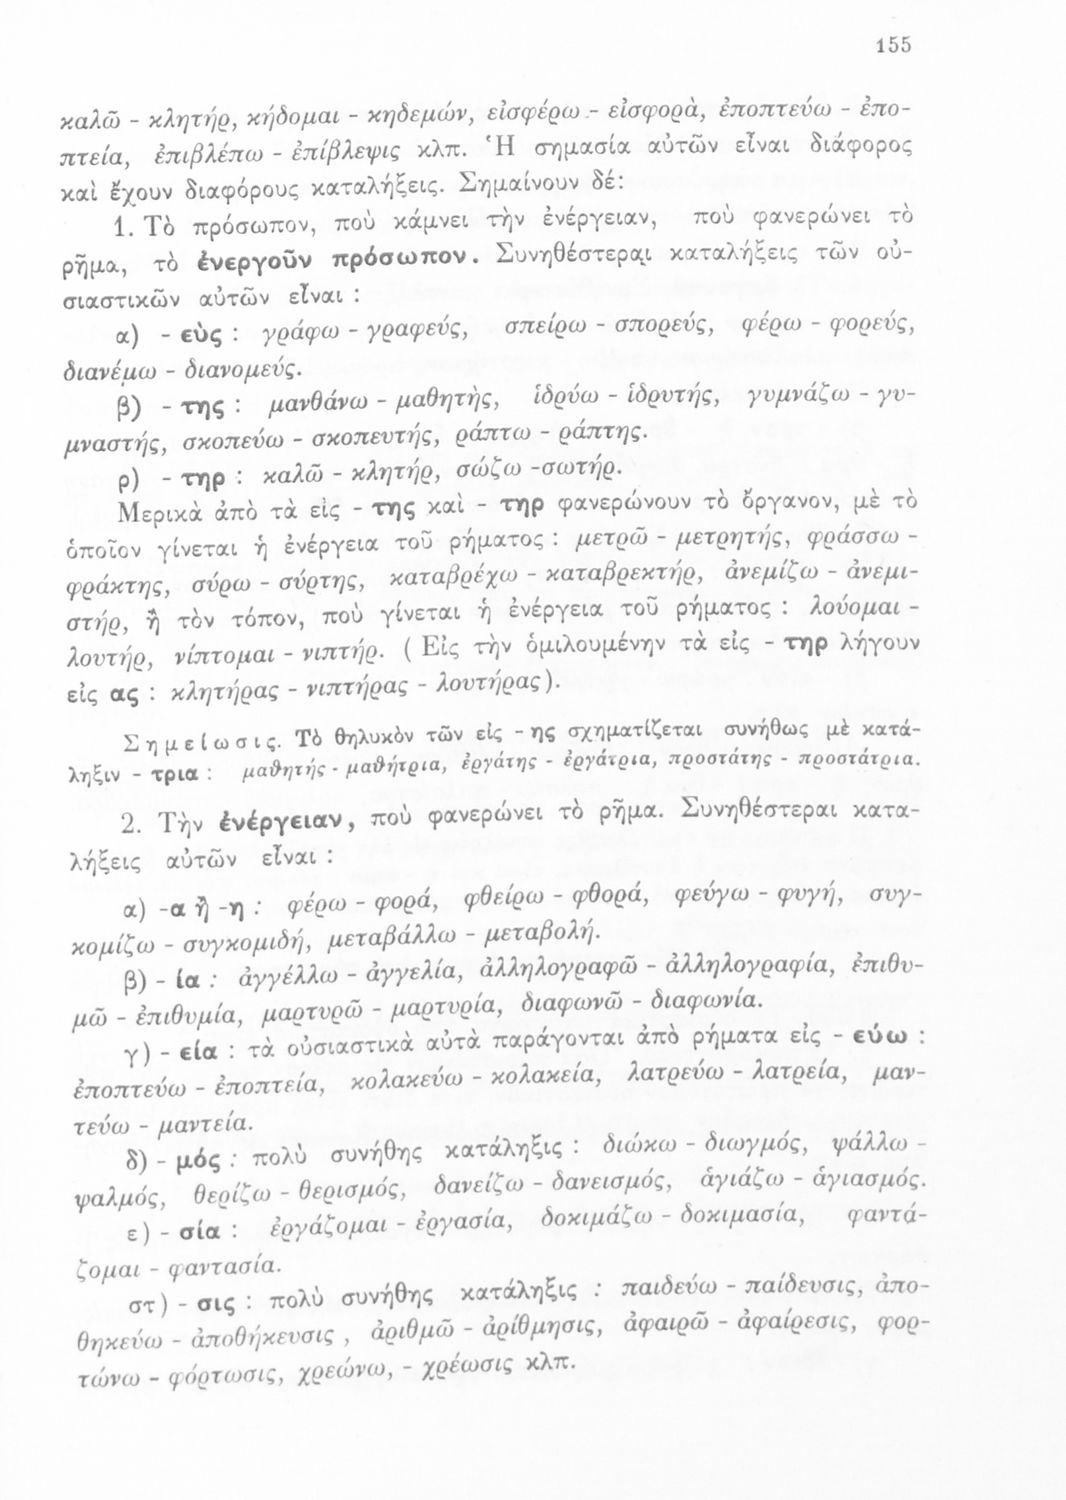 155
καλῶ - κλητήρ, κήδομαι - κηδεμών, εἰσφέρω - εἰσφορὰ, ἐποπτεύω - ἐπο-
πτεία, ἐπιβλέπω - ἐπίβλεψις κλπ. Ἡ σημασία αὐτῶν εἶναι διάφορος
καὶ ἔχουν διαφόρους καταλήξεις. Σημαίνουν δέ:
1. Τὸ πρόσωπον, ποὺ κάμνει τὴν ἐνέργειαν, ποὺ φανερώνει τὸ
ρῆμα, τὸ ἐνεργοῦν πρόσωπον. Συνηθέστεραι καταλήξεις τῶν οὐ-
σιαστικῶν αὐτῶν εἶναι :
α) - εὺς : γράφω - γραφεύς, σπείρω - σπορεύς, φέρω - φορεύς,
διανέμω - διανομεύς.
β) - της : μανθάνω - μαθητὴς, ἱδρύω - ἱδρυτής, γυμνάζω - γυ-
μναστής, σκοπεύω - σκοπευτής, ράπτω - ράπτης.
ρ) - τηρ : καλῶ - κλητήρ, σώζω -σωτήρ.
Μερικὰ ἀπὸ τὰ εἰς - της καὶ - τηρ φανερώνουν τὸ ὄργανον, μὲ τὸ
ὁποῖον γίνεται ἡ ἐνέργεια τοῦ ρήματος : μετρῶ - μετρητής, φράσσω -
φράκτης, σύρω - σύρτης, καταβρέχω - καταβρεκτήρ, ἀνεμίζω - ἀνεμι-
στήρ, ἢ τὸν τόπον, ποὺ γίνεται ἡ ἐνέργεια τοῦ ρήματος : λούομαι -
λουτήρ, νίπτομαι - νιπτήρ. ( Εἰς τὴν ὁμιλουμένην τὰ εἰς - τηρ λήγουν
εἰς ας : κλητήρας - νιπτήρας - λουτήρας).
Σημείωσις. Τὸ θηλυκὸν τῶν εἰς - ης σχηματίζεται συνήθως μὲ κατά-
ληξιν - τρια : μαθητής - μαθήτρια, ἐργάτης - ἐργάτρια, προστάτης - προστάτρια.
2. Τὴν ἐνέργειαν, ποὺ φανερώνει τὸ ρῆμα. Συνηθέστεραι κατα-
λήξεις αὐτῶν εἶναι :
α) -α ἢ -η : φέρω - φορά, φθείρω - φθορά, φεύγω - φυγή, συγ-
κομίζω - συγκομιδή, μεταβάλλω - μεταβολή.
β) - ία : ἀγγέλλω - ἀγγελία, ἀλληλογραφῶ - ἀλληλογραφία, ἐπιθυ-
μῶ - ἐπιθυμία, μαρτυρῶ - μαρτυρία, διαφωνῶ - διαφωνία.
γ) - εία : τὰ οὐσιαστικὰ αὐτὰ παράγονται ἀπὸ ρήματα εἰς - εύω :
ἐποπτεύω - ἐποπτεία, κολακεύω - κολακεία, λατρεύω - λατρεία, μαν-
τεύω - μαντεία.
δ) - μός : πολὺ συνήθης κατάληξις : διώκω - διωγμός, ψάλλω -
ψαλμός, θερίζω - θερισμός, δανείζω - δανεισμός, ἁγιάζω - ἁγιασμός.
ε) - σία : ἐργάζομαι - ἐργασία, δοκιμάζω - δοκιμασία, φαντά-
ζομαι - φαντασία.
στ) - σις : πολὺ συνήθης κατάληξις : παιδεύω - παίδευσις, ἀπο-
θηκεύω - ἀποθήκευσις , ἀριθμῶ - ἀρίθμησις, ἀφαιρῶ - ἀφαίρεσις, φορ-
τώνω - φόρτωσις, χρεώνω, - χρέωσις κλπ.